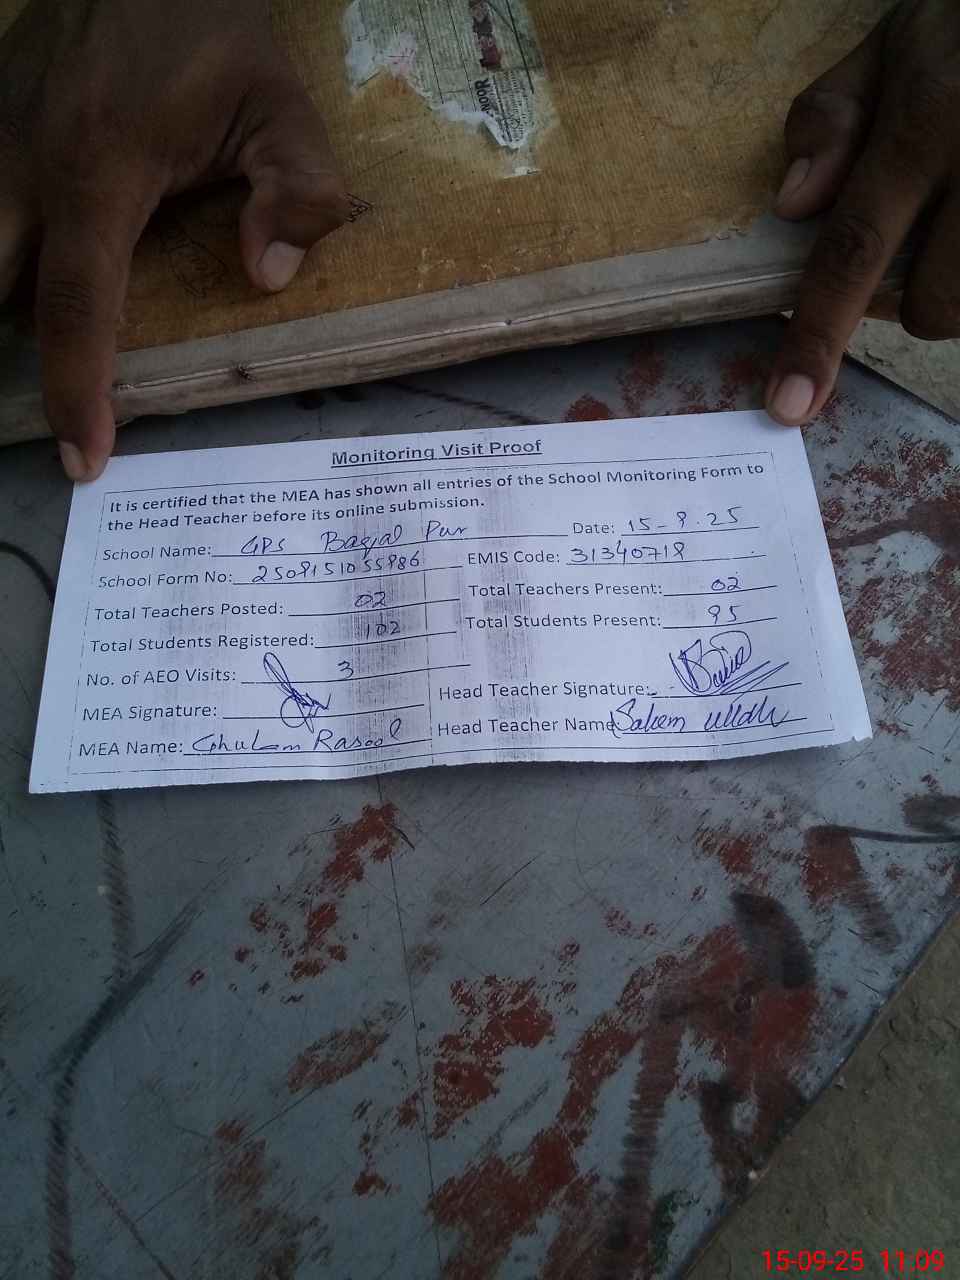 NOOR
Monitoring Visit Proof
It is certified that the MEA has shown all entries of the School Monitoring Form to
the Head Teacher before its online submission.
School Name: GPS Baqjal Pur Date: 15-9.25
School Form No: 2509151055886 EMIS Code: 31340718
Total Teachers Posted: 02 Total Teachers Present: 02
Total Students Registered: 102 Total Students Present: 95
No. of AEO Visits: 3
MEA Signature: Head Teacher Signature:
MEA Name: Ghulam Rasool Head Teacher Name Saleem ullah
15-09-25 11:09